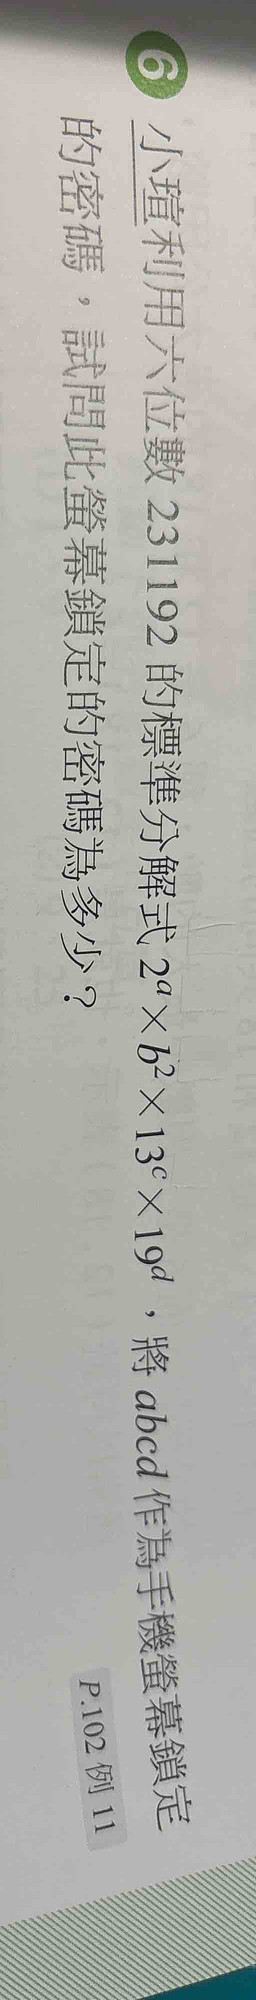 6 小瑄利用六位數 231192 的標準分解式 2ᵃ × b² × 13ᶜ × 19ᵈ，將 abcd 作為手機螢幕鎖定
的密碼，試問此螢幕鎖定的密碼為多少？
P.102 例 11